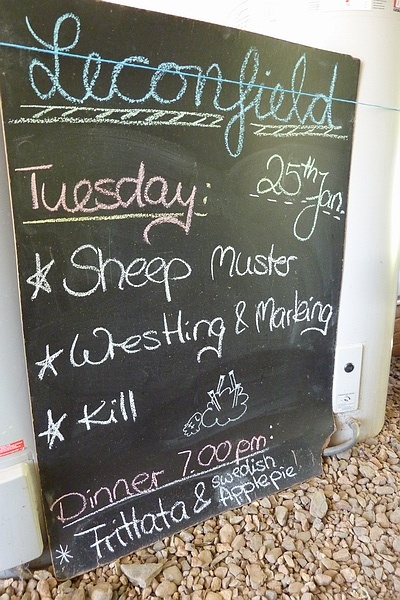 Leconfield
Tuesday: 25th Jan.
* Sheep Muster
* Wrestling & Marking
* Kill
Dinner 7.00pm:
* Frittata & swedish
Applepie!